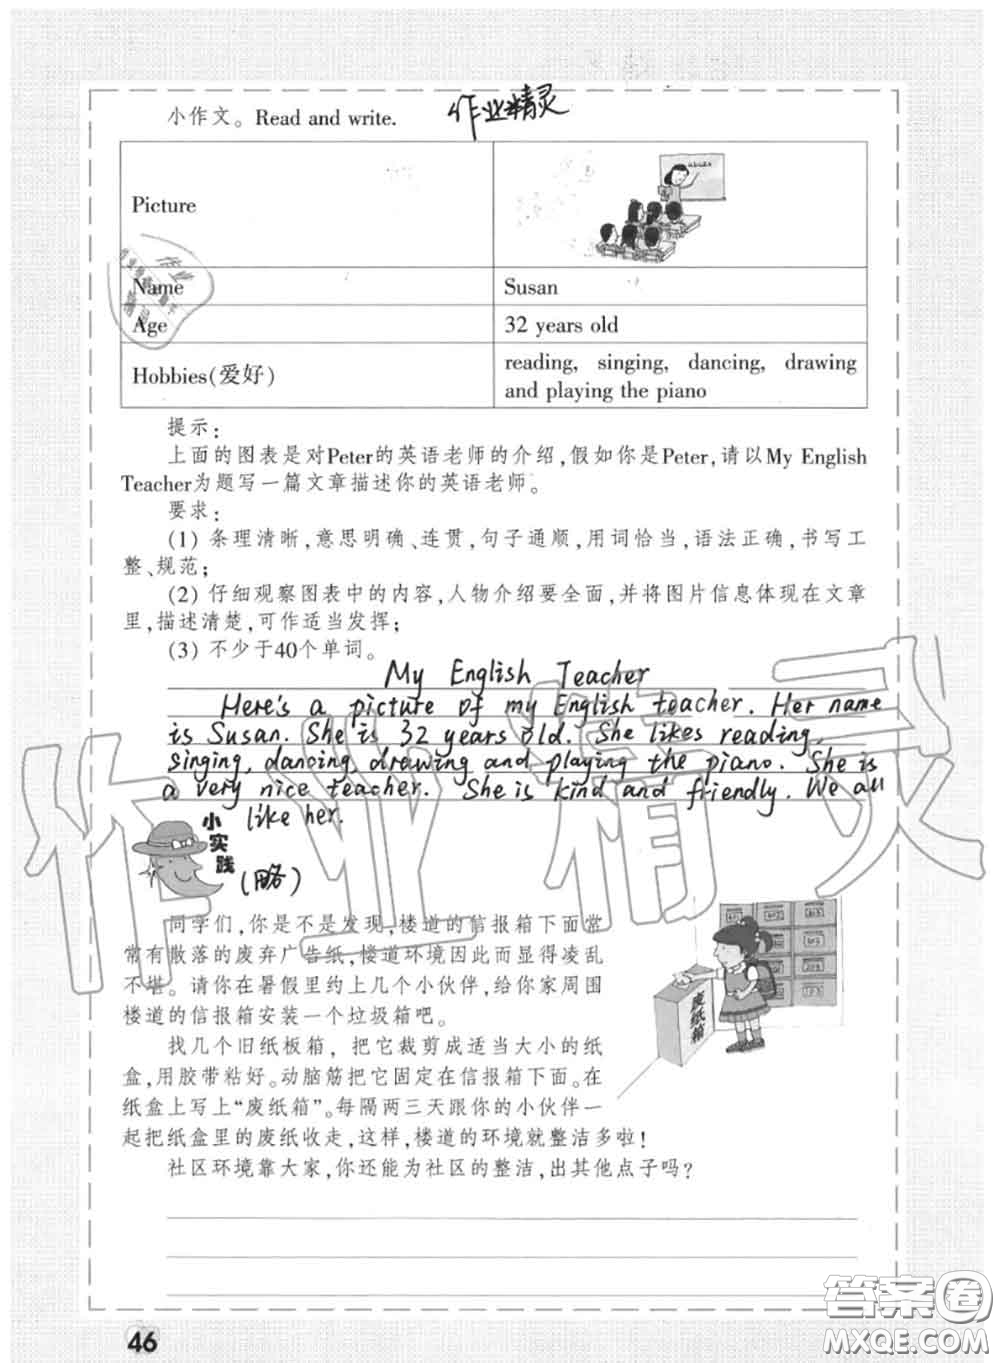 小作文。Read and write.
作业精灵
Picture
Name
Susan
Age
32 years old
Hobbies(爱好)
reading, singing, dancing, drawing
and playing the piano
提示:
上面的图表是对Peter的英语老师的介绍,假如你是Peter,请以My English
Teacher为题写一篇文章描述你的英语老师。
要求:
(1) 条理清晰,意思明确、连贯,句子通顺,用词恰当,语法正确,书写工
整、规范;
(2) 仔细观察图表中的内容,人物介绍要全面,并将图片信息体现在文章
里,描述清楚,可作适当发挥;
(3) 不少于40个单词。
My English Teacher
Here's a picture of my English teacher. Her name
is Susan. She is 32 years old. She likes reading,
singing, dancing, drawing and playing the piano. She is
a very nice teacher. She is kind and friendly. We all
like her.
小实践
(略)
同学们,你是不是发现,楼道的信报箱下面常
常有散落的废弃广告纸,楼道环境因此而显得凌乱
不堪。请你在暑假里约上几个小伙伴,给你家周围
楼道的信报箱安装一个垃圾箱吧。
找几个旧纸板箱,把它裁剪成适当大小的纸
盒,用胶带粘好。动脑筋把它固定在信报箱下面。在
纸盒上写上“废纸箱”。每隔两三天跟你的小伙伴一
起把纸盒里的废纸收走,这样,楼道的环境就整洁多啦!
社区环境靠大家,你还能为社区的整洁,出其他点子吗?
废纸箱
作业精灵
46
答案圈
MXQE.COM